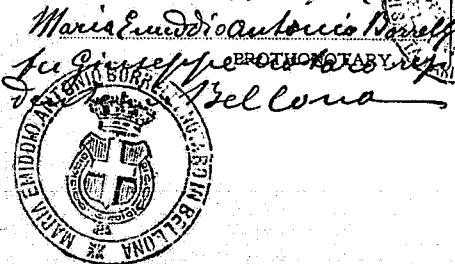 Maria Emiddio Antonio Borrelli
fu Giuseppe
PROTHONOTARY
Bellona
MARIA EMIDDIO ANTONIO BORRELLI NOTARO IN BELLONA